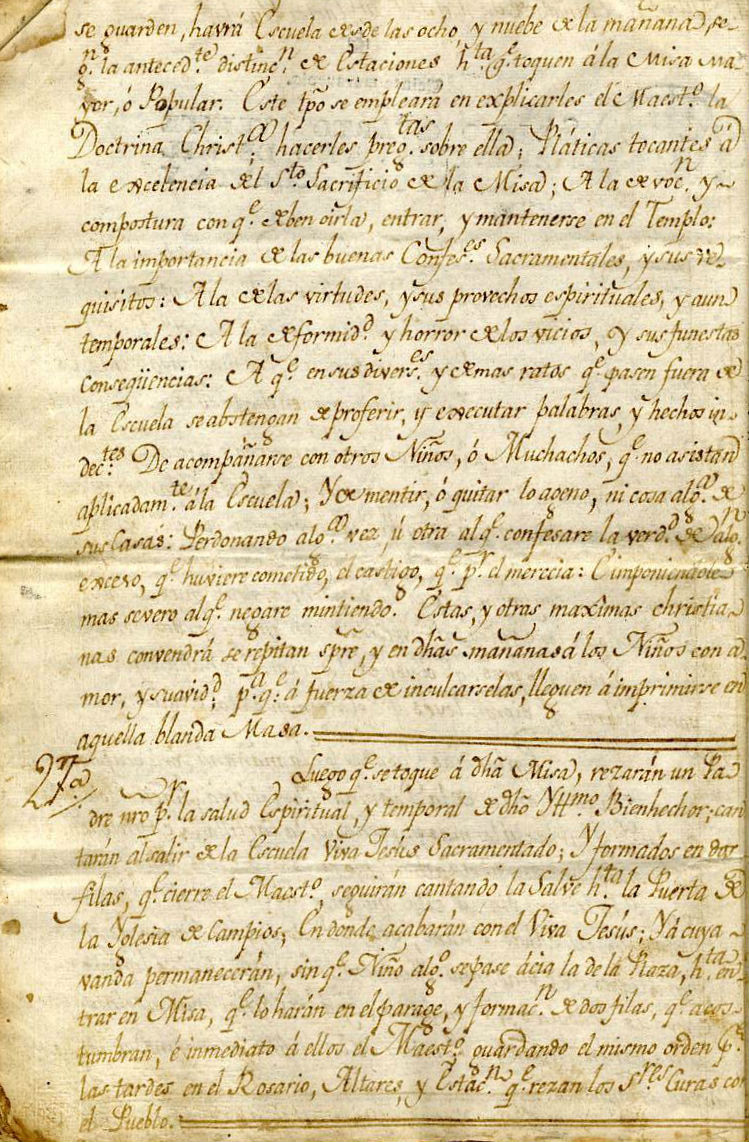 se guarden, havrá Escuela desde las ocho, y nuebe de la mañana, se-
g.n la anteced.te distinc.n de Estaciones h.ta q.e toquen á la Misa Ma-
yor, ó Popular. Este tpõ se empleará en explicarles el Maest.o la
Doctrina Christ.a; hacerles preg.tas sobre ella; Pláticas tocantes á
la excelencia del S.to Sacrificio de la Misa; A la devoc.n y
compostura con q.e deben oirla, entrar, y mantenerse en el Templo:
A la importancia de las buenas Confes.es Sacramentales, y sus re-
quisitos: A la de las virtudes, y sus provechos espirituales, y aun
temporales: A la deformid.d y horror de los vicios, y sus funestas
conseqüencias: A q.e en sus divers.es y demas ratos q.e pasen fuera de
la Escuela se abstengan de proferir, y executar palabras, y hechos in-
dec.tes De acompañarse con otros Niños, ó Muchachos, q.e no asistan
aplicadam.te á la Escuela; Y de mentir, ó quitar lo ageno, ni cosa alg.a de
sus Casas: Perdonando alg.a vez, ú otra al q.e confesare la verd.d de álg.n
exceso, q.e huviere cometido, el castigo, q.e p.r el merecia: E imponiendole
mas severo al q.e negare mintiendo. Estas, y otras maxîmas christia-
nas convendrá se repitan spr̃e, y en dhãs mañanas á los Niños con a-
mor, y suavid.d; p.a q.e á fuerza de inculcarselas, lleguen á imprimirse en
aquella blanda Masa.
27.a Luego q.e se toque á dhã Misa, rezarán un Pa-
dre nrõ p.r la salud Espiritual, y temporal de dhõ Yll.mo Bienhechor; can
tarán al salir de la Escuela Viva Jesús Sacramentado; Y formados en dos
filas, q.e cierre el Maest.o, seguirán cantando la Salve h.ta la Puerta de
la Yglesia de Campios; En donde acabarán con el Viva Jesús; Y á cuya
vanda permanecerán, sin q.e Niño alg.o se pase ácia la de la Plaza, h.ta en
trar en Misa, q.e lo harán en el parage, y formac.n de dos filas, q.e acos-
tumbran, é inmediato á ellos el Maest.o guardando el mismo orden p.r
las tardes en el Rosario, Altares, y Estac.n q.e rezan los S.res Curas con
el Pueblo.